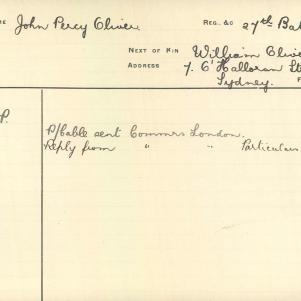 ME John Percy Oliver REG. &c 27th Bat
NEXT OF KIN William Olive
ADDRESS 7. O'Halloran St
Sydney.
P. P/Cable sent Commrs London.
Reply from " " Particulars